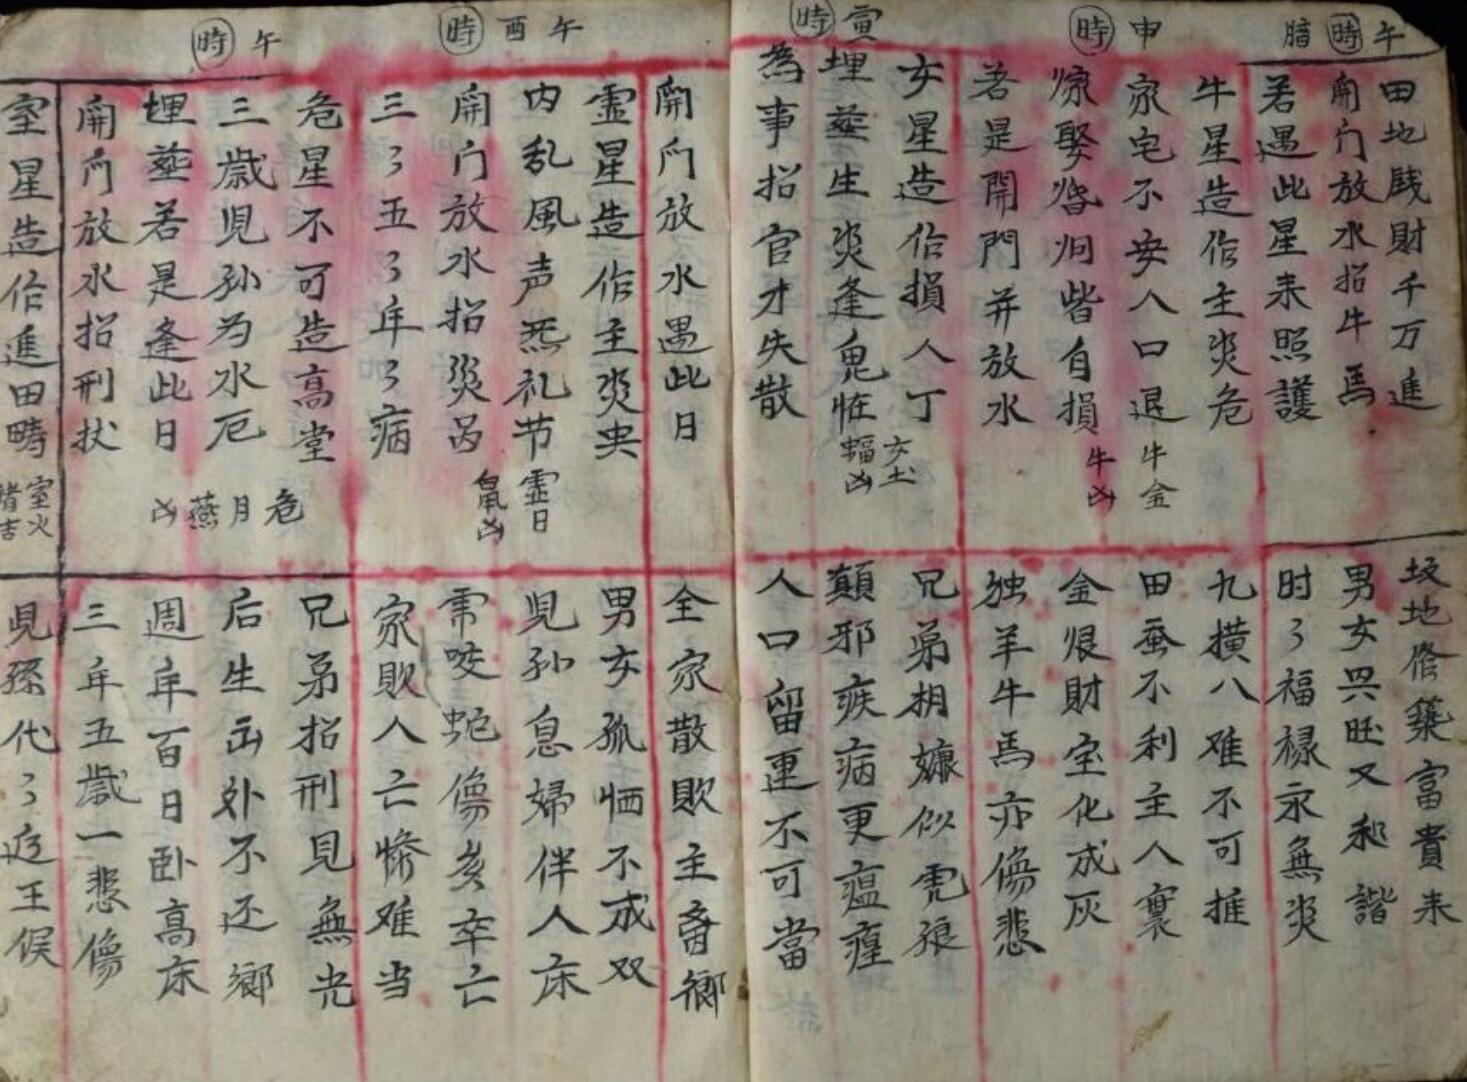 午時暗
田地戝財千万進
坟地修築富貴来
開门放水招牛馬
男女兴旺又和諧
若遇此星来照護
时々福禄永無灾
申時
牛星造作主灾危
九横八难不可推
家宅不安人口退
田蚕不利主人衰
牛金
嫁娶婚姻皆自損
金银財宝化成灰
牛凶
若是開門并放水
独羊牛馬亦傷悲
寅時
女星造作損人丁
兄弟相嫌似虎狼
女土
埋塟生灾逢鬼怪
顛邪疾病更瘟瘟
蝠凶
為事招官才失散
人口留連不可當
開门放水遇此日
全家散敗主离鄉
午酉時
霊星造作主灾央
男女孤恓不成双
内乱風声無礼节
児孙息婦伴人床
霊日
開门放水招災
虎咬蛇傷亥卒亡
鼠凶
三々五々年々病
家敗人亡惨难当
午時
危星不可造高堂
兄弟招刑見無光
危月燕凶
三歲児孙为水厄
后生出外不还鄉
埋塟若是逢此日
週年百日卧高床
開门放水招刑状
三年五歲一悲傷
室星造作進田畴
児孫代々近王侯
室火
猪吉